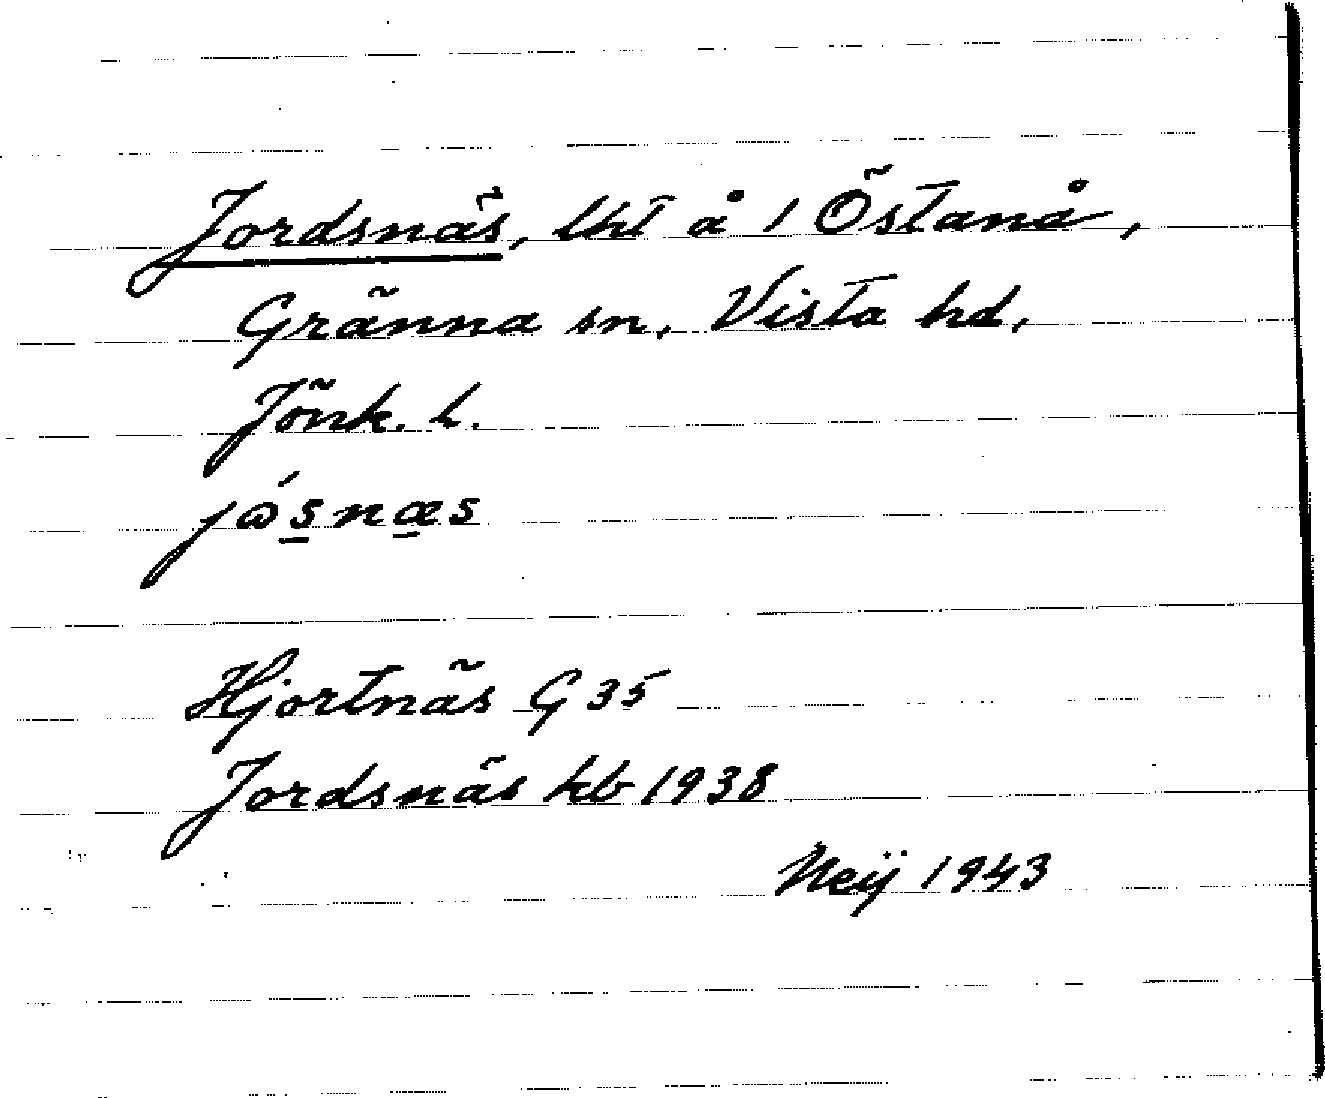 Jordsnäs, lht å 1 Östanå,
Gränna sn, Vista hd,
Jönk. l.
jɷ́s̱næ̱s
Hjortnäs G 35
Jordsnäs kb 1938
Neij 1943